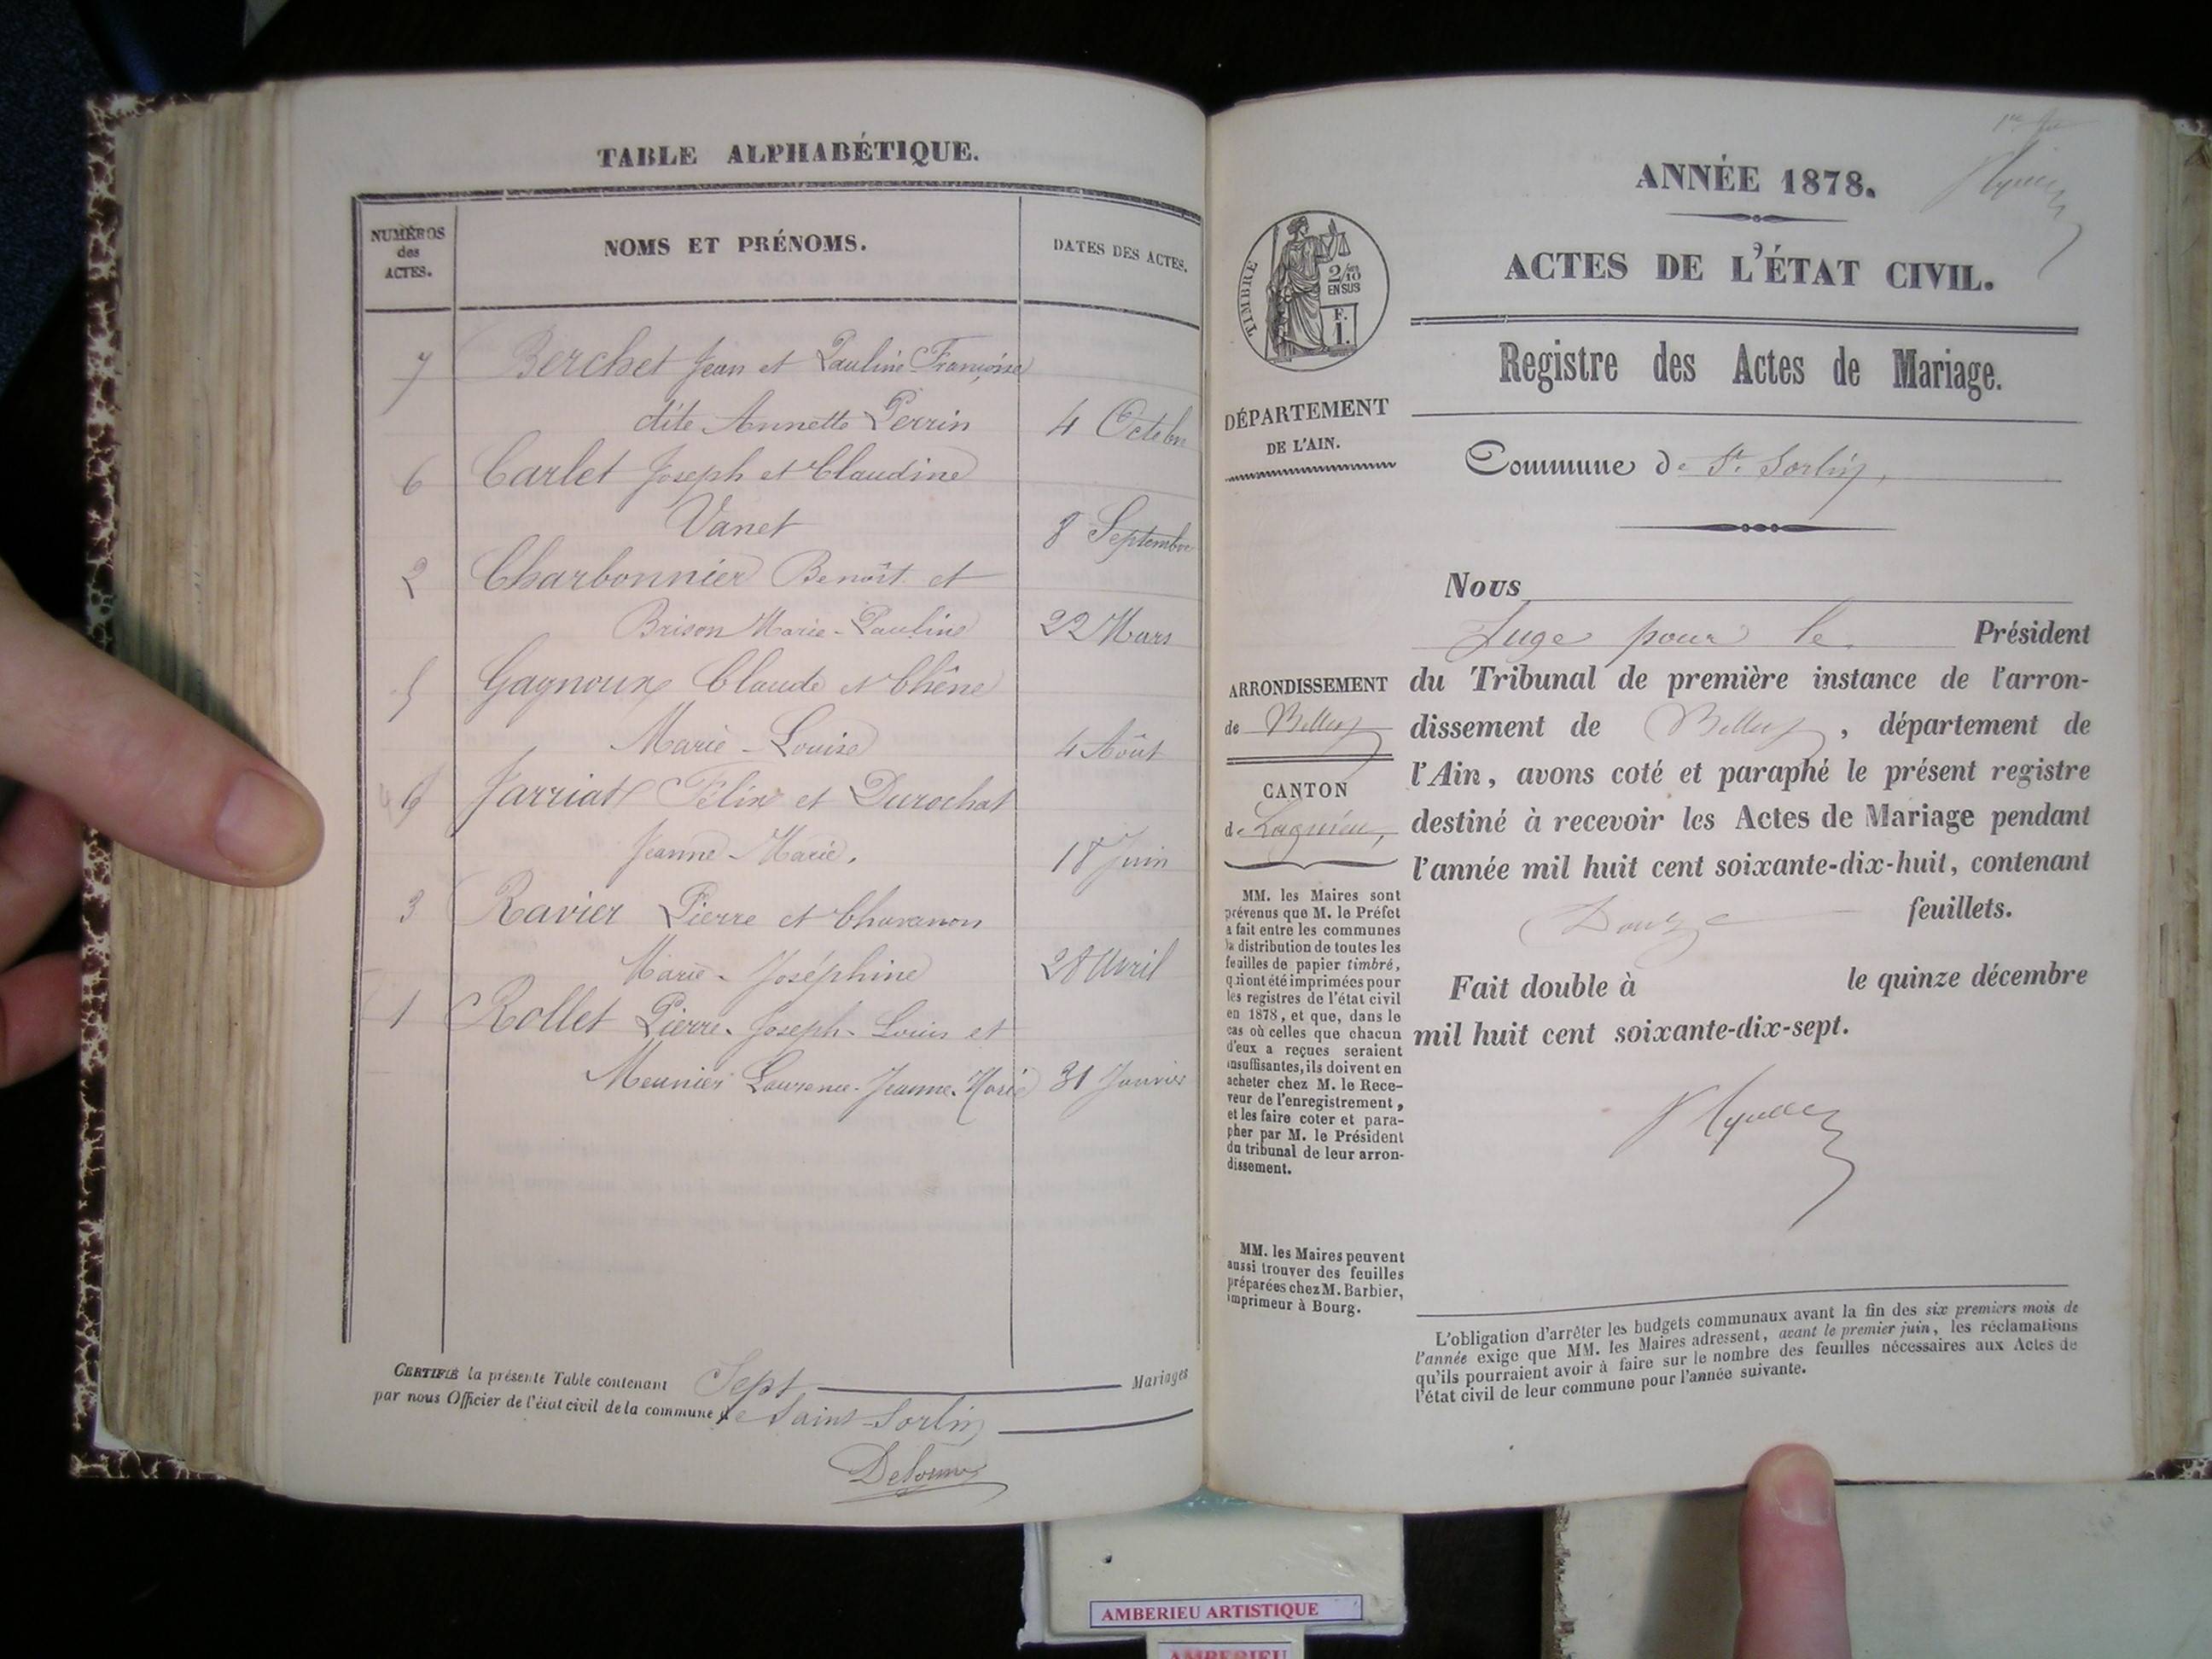 TABLE ALPHABÉTIQUE.
NUMÉROS
des
ACTES.
NOMS ET PRÉNOMS.
DATES DES ACTES.
7 Berchet Jean et Pauline Françoise
dite Annette Perrin 4 Octobre
6 Carlet Joseph et Claudine
Vanet 8 Septembre
2 Charbonnier Benoît et
Brison Marie-Pauline 22 Mars
5 Gagnoux Claude et Chêne
Marie-Louise 4 Août
Jarriat Félix et Durochat
Jeanne-Marie. 18 Juin
3 Ravier Pierre et Chavanon
Marie-Joséphine 28 Avril
1 Rollet Pierre-Joseph-Louis et
Meunier Laurence-Jeanne-Marie 31 Janvier
CERTIFIÉ la présente Table contenant Sept Mariages
par nous Officier de l'état civil de la commune de Saint-Sorlin
ANNÉE 1878.
ACTES DE L'ÉTAT CIVIL.
TIMBRE
2/10
EN SUS
F.
1.
Registre des Actes de Mariage.
DÉPARTEMENT
DE L'AIN.
Commune de St. Sorlin,
Nous
Juge pour le Président
du Tribunal de première instance de l'arron-
dissement de Belley, département de
l'Ain, avons coté et paraphé le présent registre
destiné à recevoir les Actes de Mariage pendant
l'année mil huit cent soixante-dix-huit, contenant
Douze feuillets.
Fait double à le quinze décembre
mil huit cent soixante-dix-sept.
ARRONDISSEMENT
de Belley
CANTON
de Lagnieu,
MM. les Maires sont
prévenus que M. le Préfet
a fait entre les communes
la distribution de toutes les
feuilles de papier timbré,
qui ont été imprimées pour
les registres de l'état civil
en 1878, et que, dans le
cas où celles que chacun
d'eux a reçues seraient
insuffisantes, ils doivent en
acheter chez M. le Rece-
veur de l'enregistrement,
et les faire coter et para-
pher par M. le Président
du tribunal de leur arron-
dissement.
MM. les Maires peuvent
aussi trouver des feuilles
préparées chez M. Barbier,
imprimeur à Bourg.
L'obligation d'arrêter les budgets communaux avant la fin des six premiers mois de
l'année exige que MM. les Maires adressent, avant le premier juin, les réclamations
qu'ils pourraient avoir à faire sur le nombre des feuilles nécessaires aux Actes de
l'état civil de leur commune pour l'année suivante.
AMBERIEU ARTISTIQUE
AMBERIEU